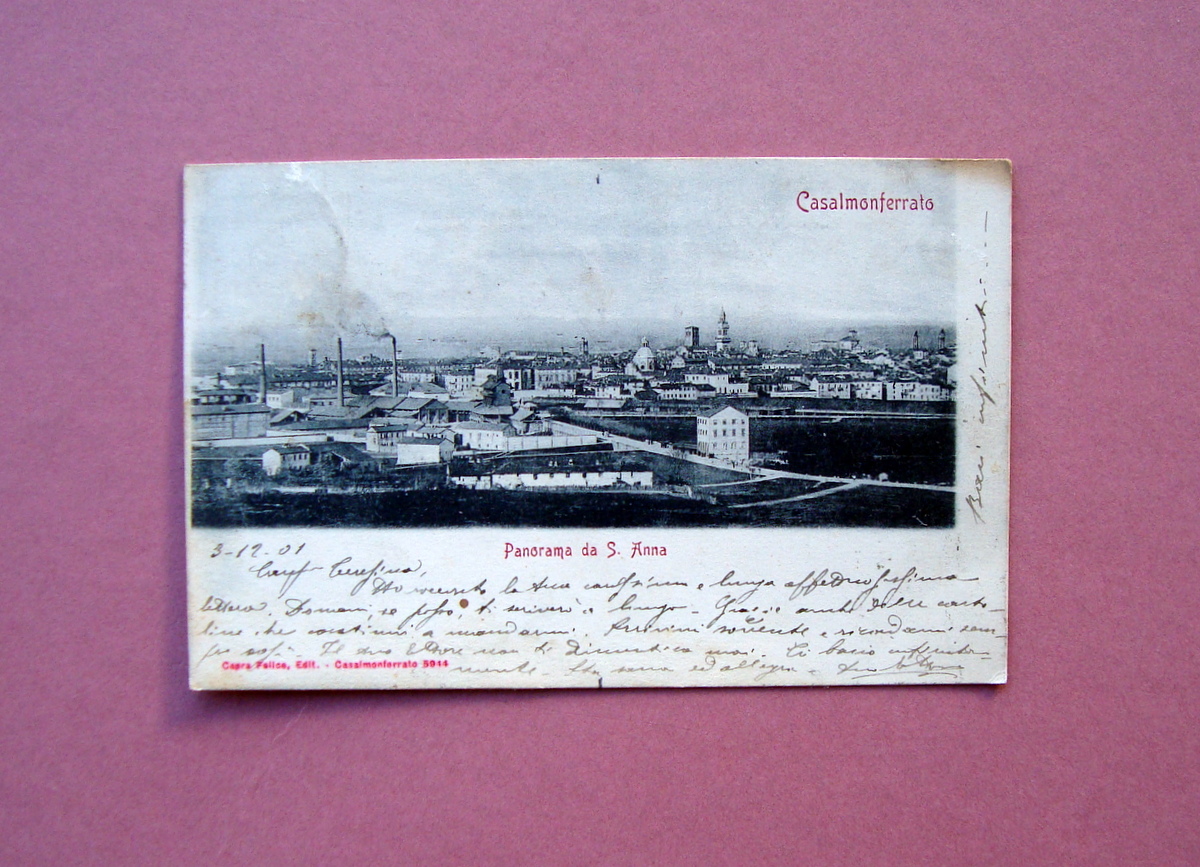 Casalmonferrato
Baci infiniti
Panorama da S. Anna
3-12-01
Ho ricevuto la tua carissima e lunga affettuosissima
lettera. Domani, se posso, ti scriverò a lungo - Grazie anche delle carto-
line che continui a mandarmi. Scrivimi sovente e ricordami sem-
pre così. Il tuo Ettore non ti dimentica mai. Ti bacio infinita-
mente - Sta sana ed allegra - tuo
Capra Felice, Edit. - Casalmonferrato 5944